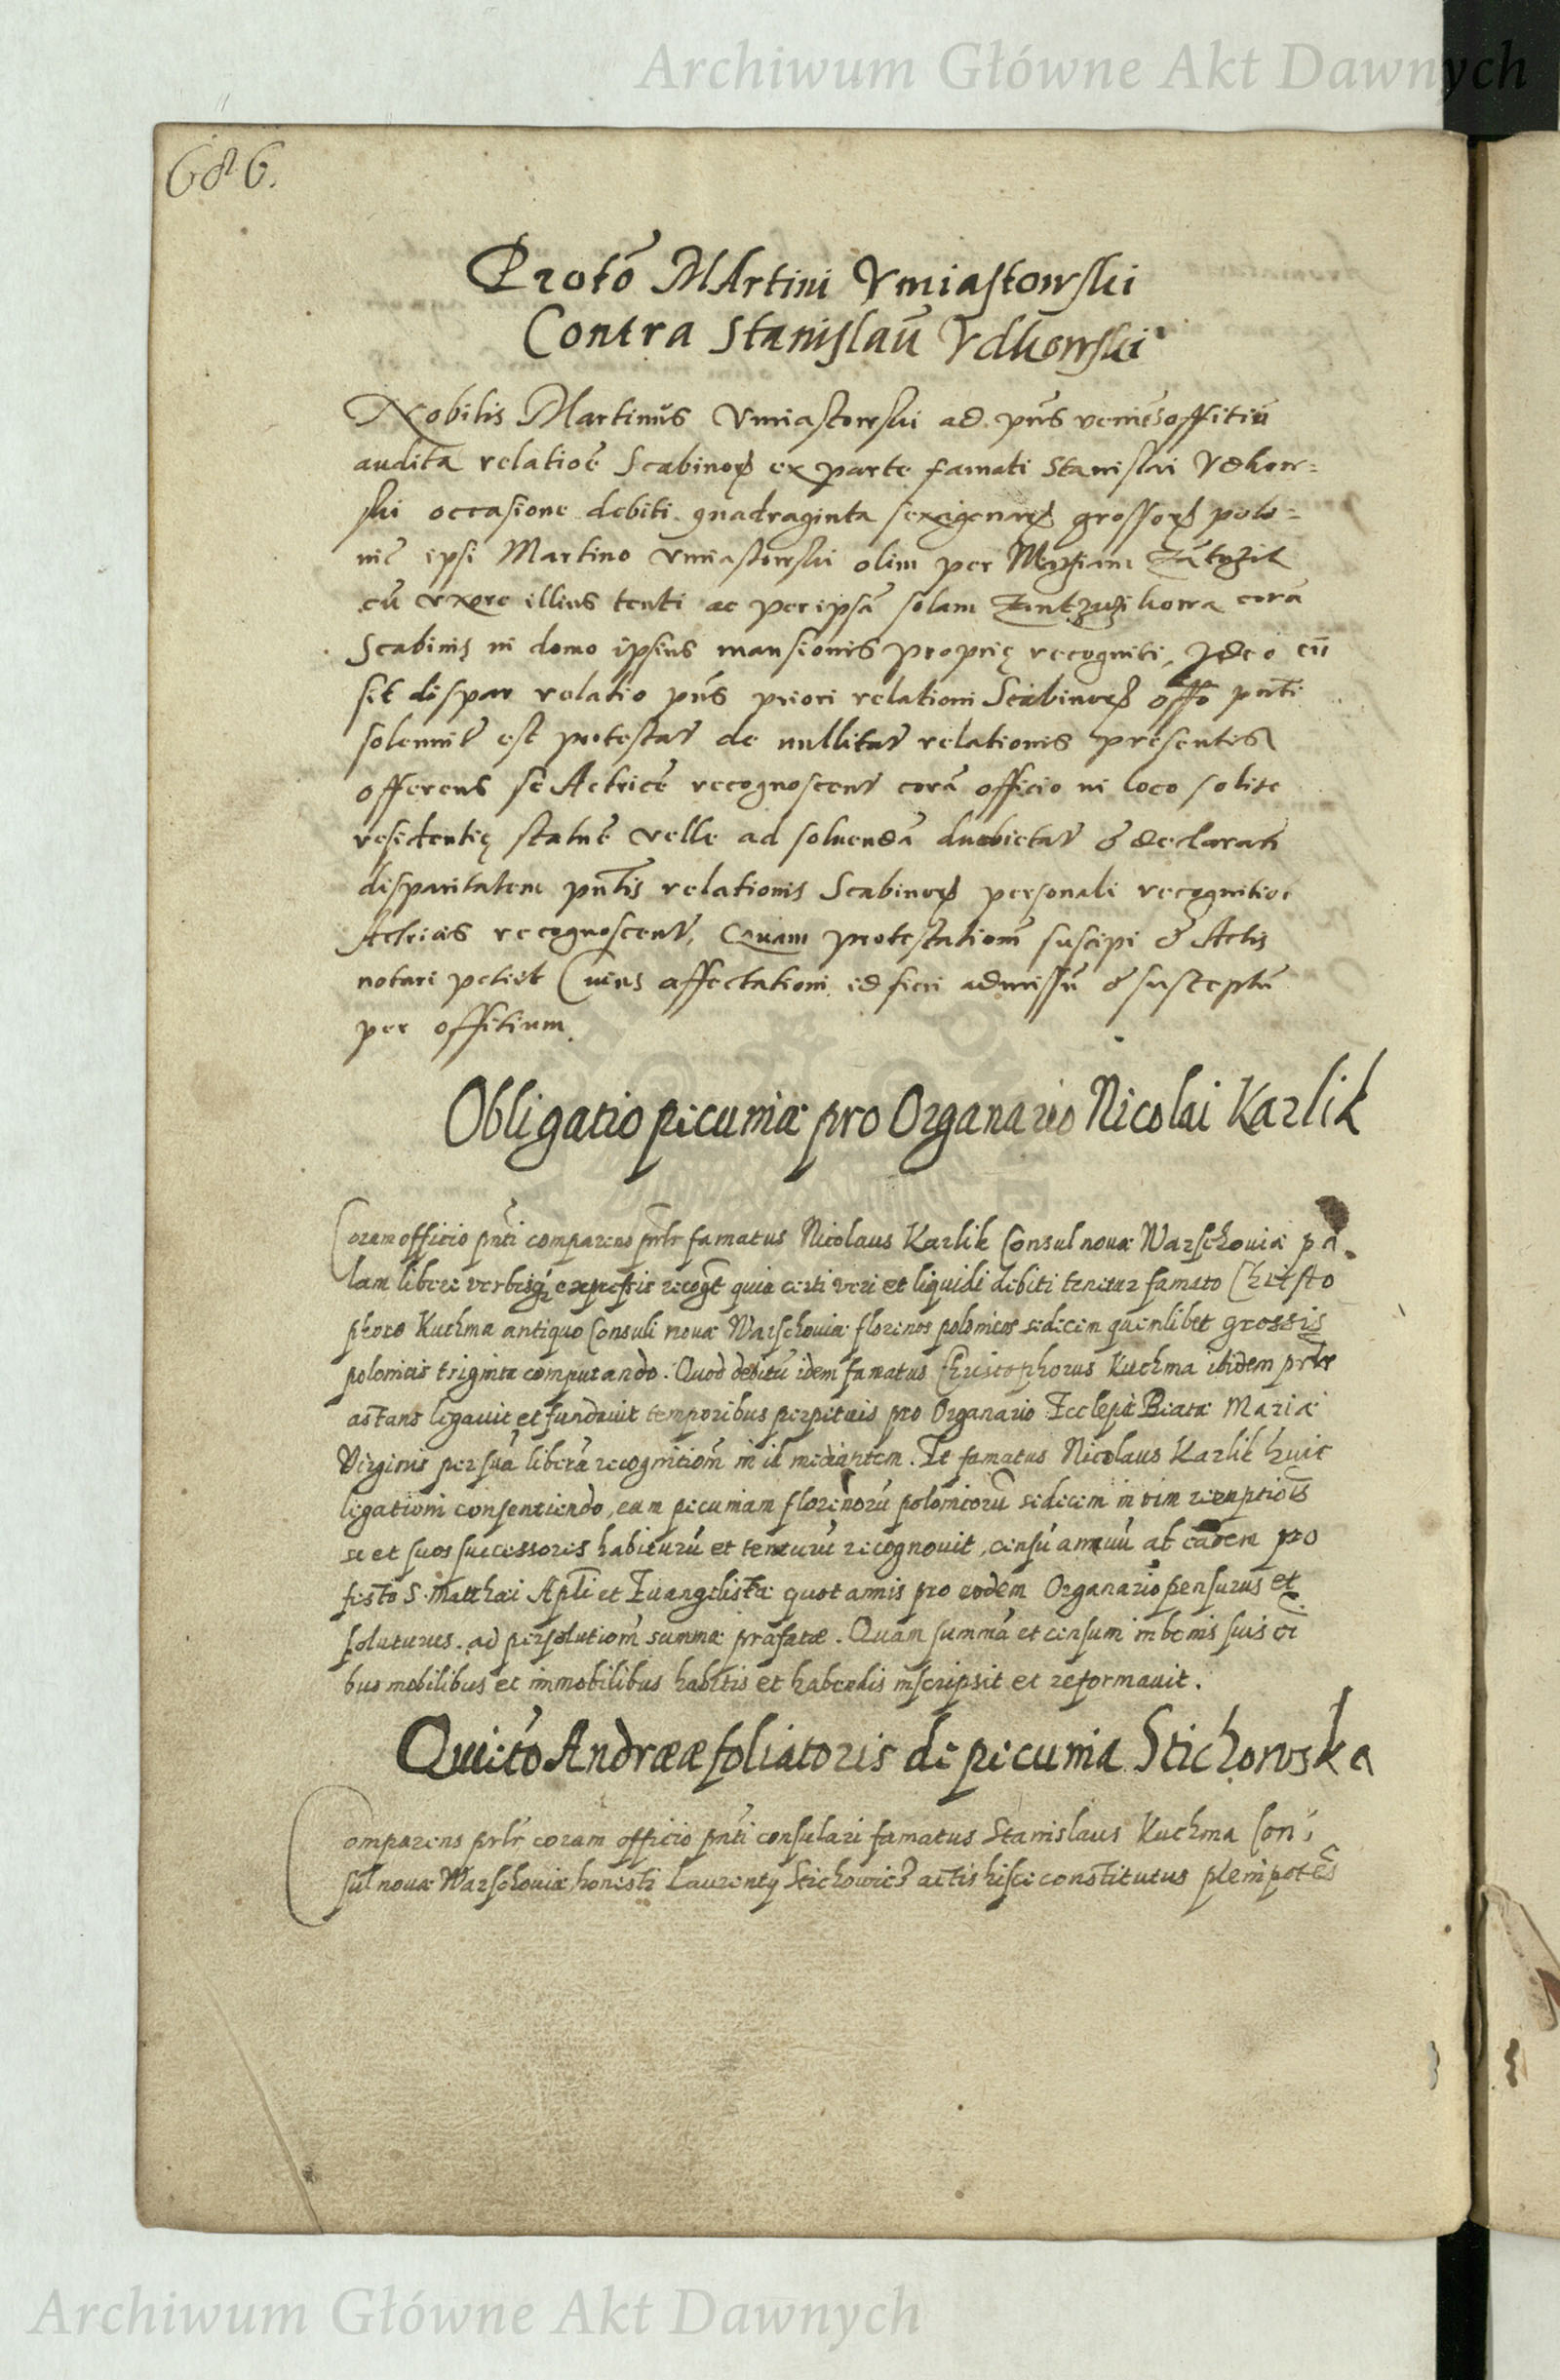 Archiwum Główne Akt Dawnych
686.
Protō Martini Vmiastowski
Contra Stanislaū Vdkowski
Nobilis Martinus Vmiastowski ad pn̄s veniēs offitiū
audita relatioē Scabinoꝝ ex parte famati Stanislai Vdkow=
ski occasione debiti quadraginta sexagenarꝝ grossoꝝ polo=
nic̄ ipsi Martino Vmiastowski olim per
cū vxore illius tenti ac per ipsā solam corā
Scabinis in domo ipsius mansionis proprię recogniti, Ideo cū
sit dispar relatio pn̄s priori relationi Scabinoꝝ offō pn̄ti
solennit̄ est protestat̄ de nullitat̄ relationis presentis
offerens se Actricē recognoscent̄ corā officio in loco solite
residentię statuē velle ad soluendā dubietat̄ & declarand̄
disparitatem pn̄tis relationis Scabinoꝝ personali recognitioē
Actricis recognoscent̄, Quam protestationē suscipi & Actis
notari petiit Cuius affectationi id fieri admissū & susceptū
per offitium.
Obligatio pecuniæ pro Organario Nicolai Karlik
Coram officio pn̄ti comparens prl̄r famatus Nicolaus Karlik Consul nouæ Warschouiæ pa
lam libere verbisq; expressis recogt̄ quia certi veri et liquidi debiti tenetur famato Christo
phoro Kuchma antiquo Consuli nouæ Warschouiæ florenos polonicos sedecem quemlibet grossis
polonicis triginta computando. Quod debitū idem famatus Christophorus Kuchma ibidem prl̄r
astans legauit et fundauit temporibus perpetuis pro Organario Ecclesiæ Beatæ Mariæ
Virginis per suā liberā recognitionē in id mediantem. Et famatus Nicolaus Karlik huic
legationi consentiendo, eam pecuniam florenorū polonicorū sedecem in vim reemptiois
se et suos successores habiturū et tenturū recognouit, censū annuū ab eadem pro
festo S. Matthæi Apl̄i et Euangelistæ quot annis pro eodem Organario pensurus et
soluturus. ad persolutionē summæ præfatæ. Quam summā et censum in bonis suis oī
bus mobilibus et immobilibus habitis et habendis inscripsit et reformauit.
Quietō Andreæ foliatoris de pecunia Stichowska
Comparens prl̄r coram officio pn̄ti consulari famatus Stanislaus Kuchma Con
sul nouæ Warschouiæ, honesti Laurentÿ Stichowicz actis hisce constitutus plenipotēs
Archiwum Główne Akt Dawnych